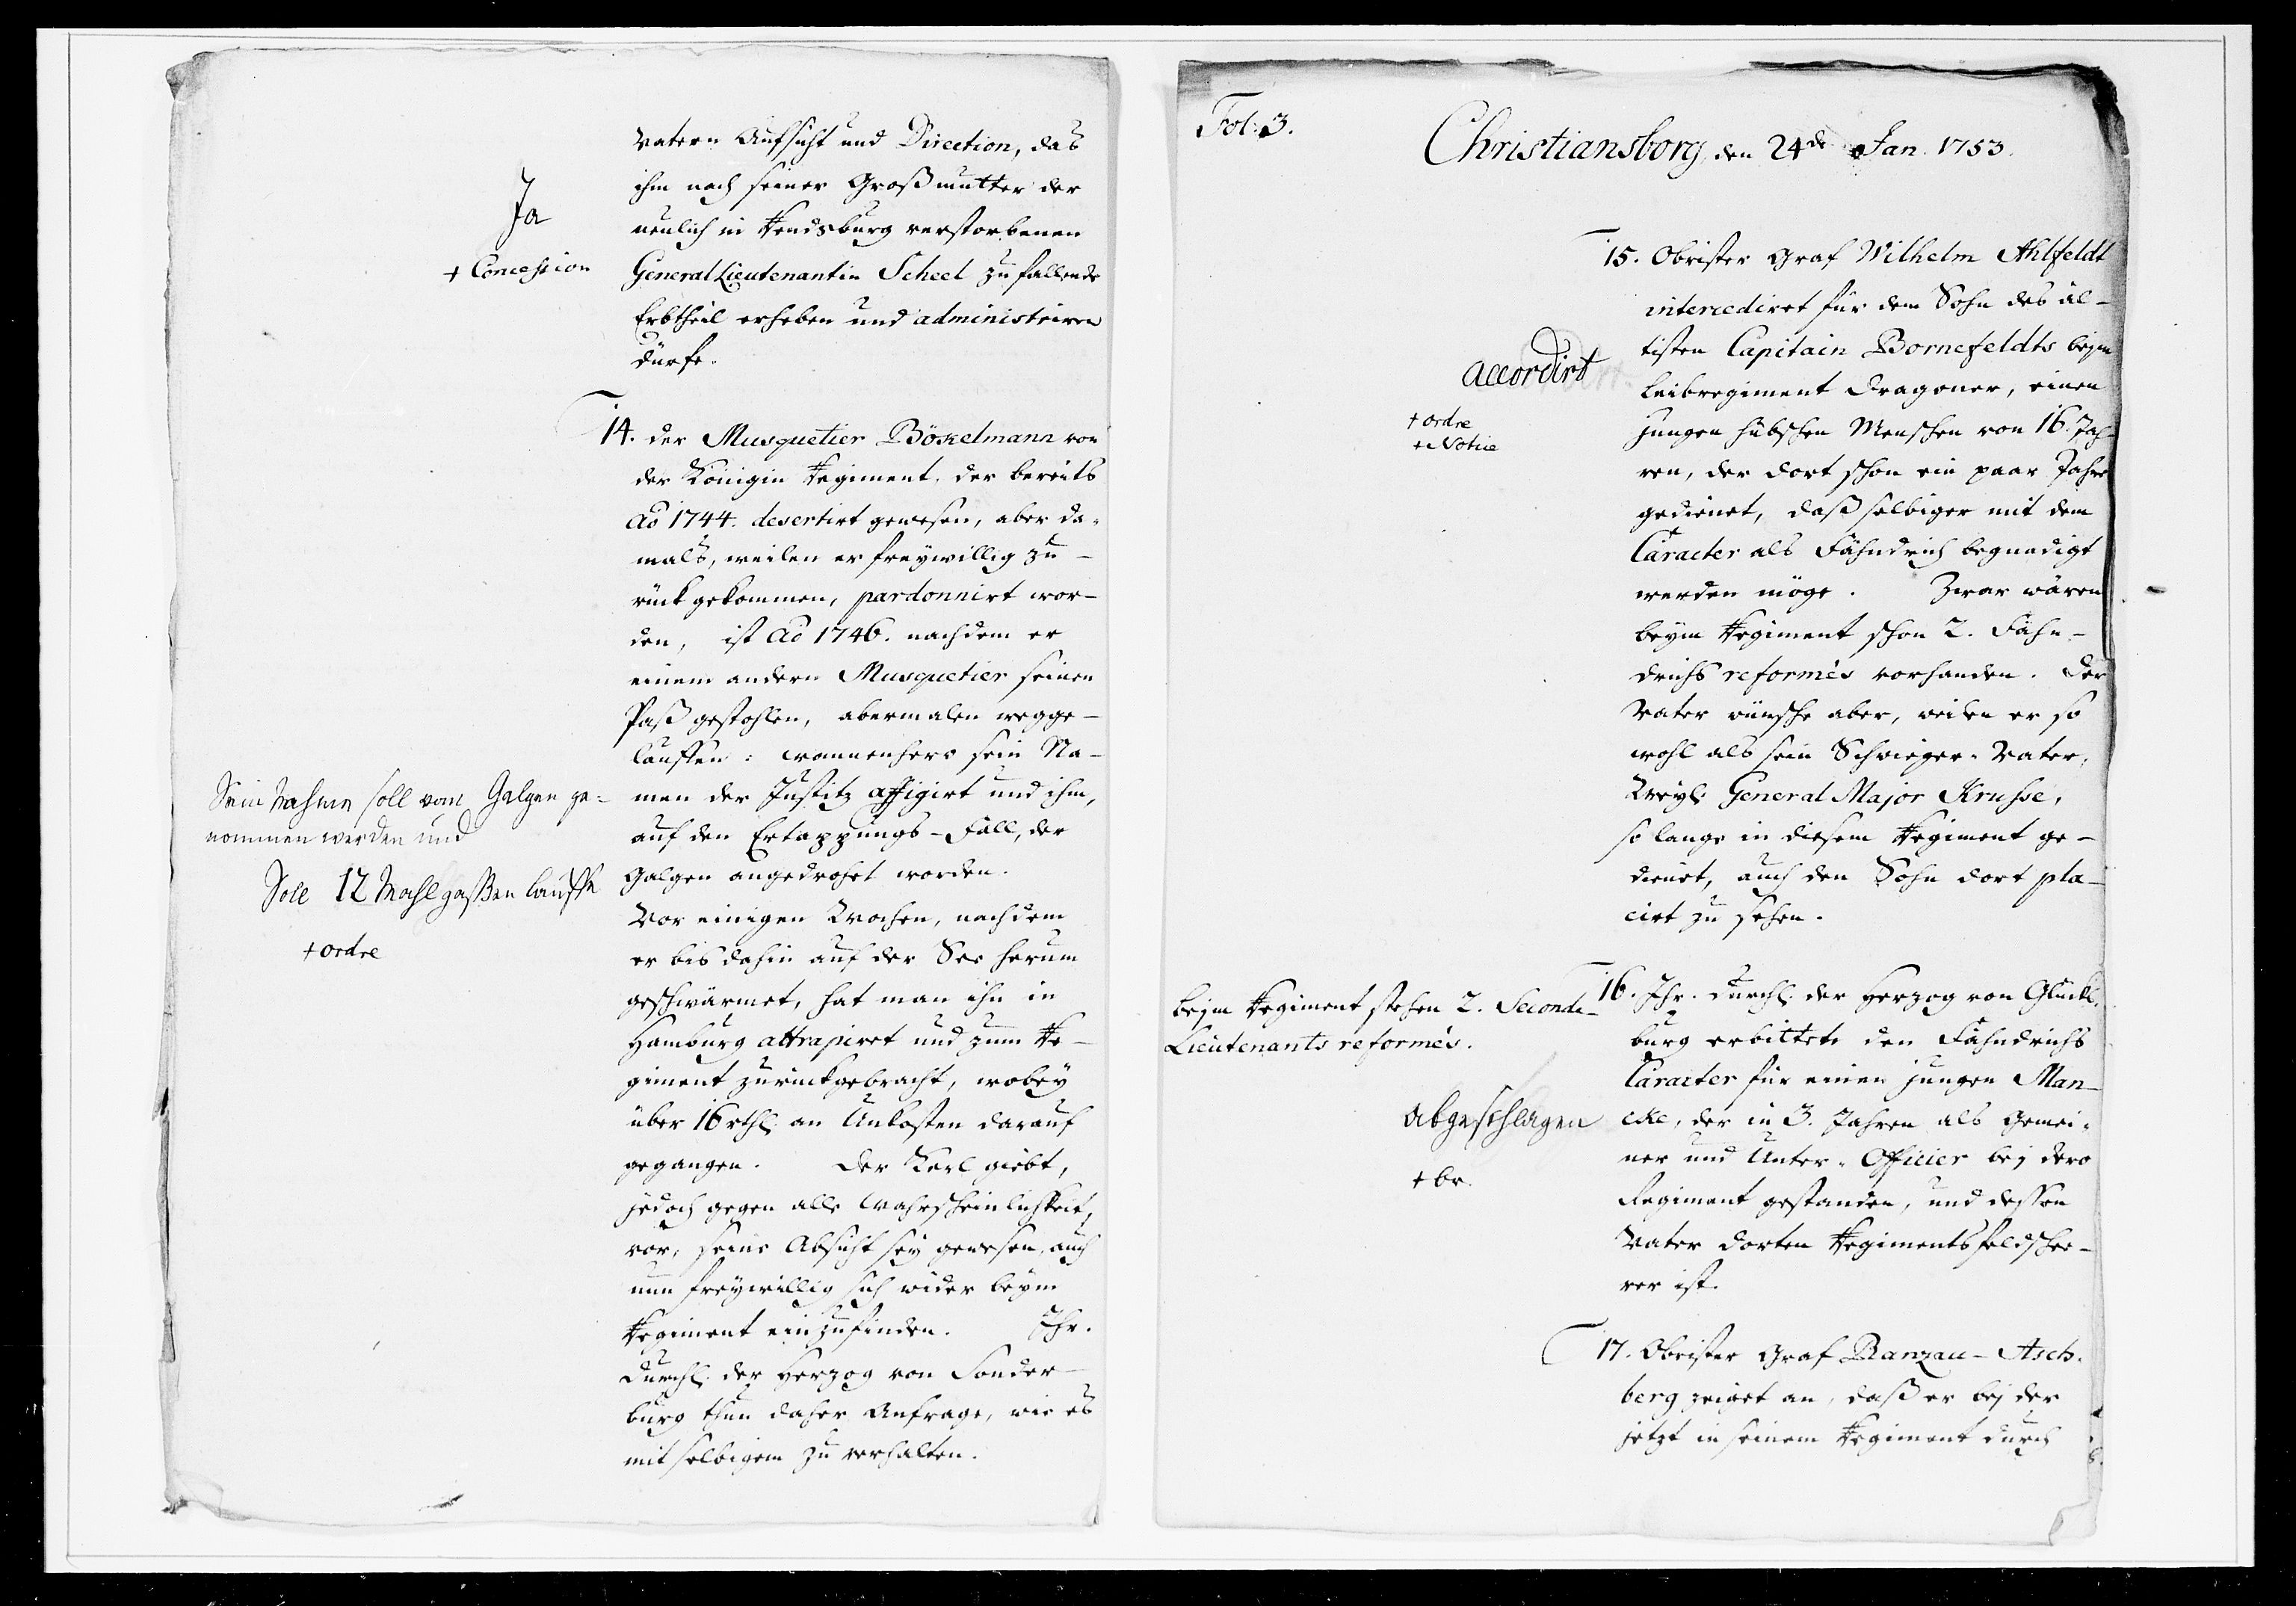 Vatern Aufsicht und Direction, das
ihm nach seiner Großmutter der
neulich in Rendsburg verstorbenen
Ja
General Lieutenantin Scheel zu fallende
+ Concession
Erbtheil erheben und administriren
dürfe.
14. der Musquetier Bökelmann von
der Königin Regiment, der bereits
ao 1744. desertirt gewesen, aber da-
mals, weilen er freywillig zu-
rück gekommen, pardonnirt wor-
den, ist ao 1746. nachdem er
einem andern Musquetier seinen
Paß gestohlen, abermalen wegge-
lauffen: wannenhero sein Na-
men der Justitz affigirt und ihm,
auf den Ertappungs-Fall, der
Galgen angedrohet worden.
Sein Nahme soll vom Galgen ge-
nommen werden und
Soll 12 Mahl gaßen lauffen
+ ordre
Vor einigen Wochen, nachdem
er bis dahin auf der See herum
geschwärmet, hat man ihn in
Hamburg attrapiret und zum Re-
giment zurückgebracht, wobey
über 16 rthl. an Unkosten darauf
gegangen. Der Kerl giebt,
jedoch gegen alle Wahrscheinlichkeit,
vor, seine Absicht sey gewesen, auch
nun freywillig sich wider beym
Regiment einzufinden. Ihr.
Durchl. der Herzog von Sonder-
burg thun daher Anfrage, wie es
mit selbigem zu verhalten.
Fol. 3.
Christiansborg, den 24de Jan. 1753.
15. Obrister Graf Wilhelm Ahlfeldt
intercediret für dem Sohn des äl-
tisten Capitain Bornefeldts beym
Leibregiment Dragoner, einen
jungen hübschen Menschen von 16. Jah-
ren, der dort schon ein paar Jahre
gedienet, daß selbiger mit dem
Caracter als Fähndrich begnadigt
werden möge. Zwar wären
beym Regiment schon 2. Fähn-
drichs reformés vorhanden. Der
Vater wünsche aber, weilen er so
wohl als sein Schwieger-Vater,
Weyl. General Major Kruhse,
so lange in diesem Regiment ge-
dienet, auch den Sohn dort pla-
cirt zu sehen.
accordirt
+ ordre
+ Notice
16. Ihr. Durchl. der Herzog von Glücks-
burg erbittete den Fähndrichs
Caracter für einen jungen Man-
cke, der in 3. Jahren als Gemei-
ner und Unter-Officier bey dero
Regiment gestanden, und dessen
Vater dorten Regimentsfeldschee-
rer ist.
beym Regiment stehen 2. Seconde-
Lieutenants reformés.
abgeschlagen
+ br.
17. Obrister Graf Ranzau-Asch-
berg zeiget an, daß er bey der
jetzt in seinem Regiment durch